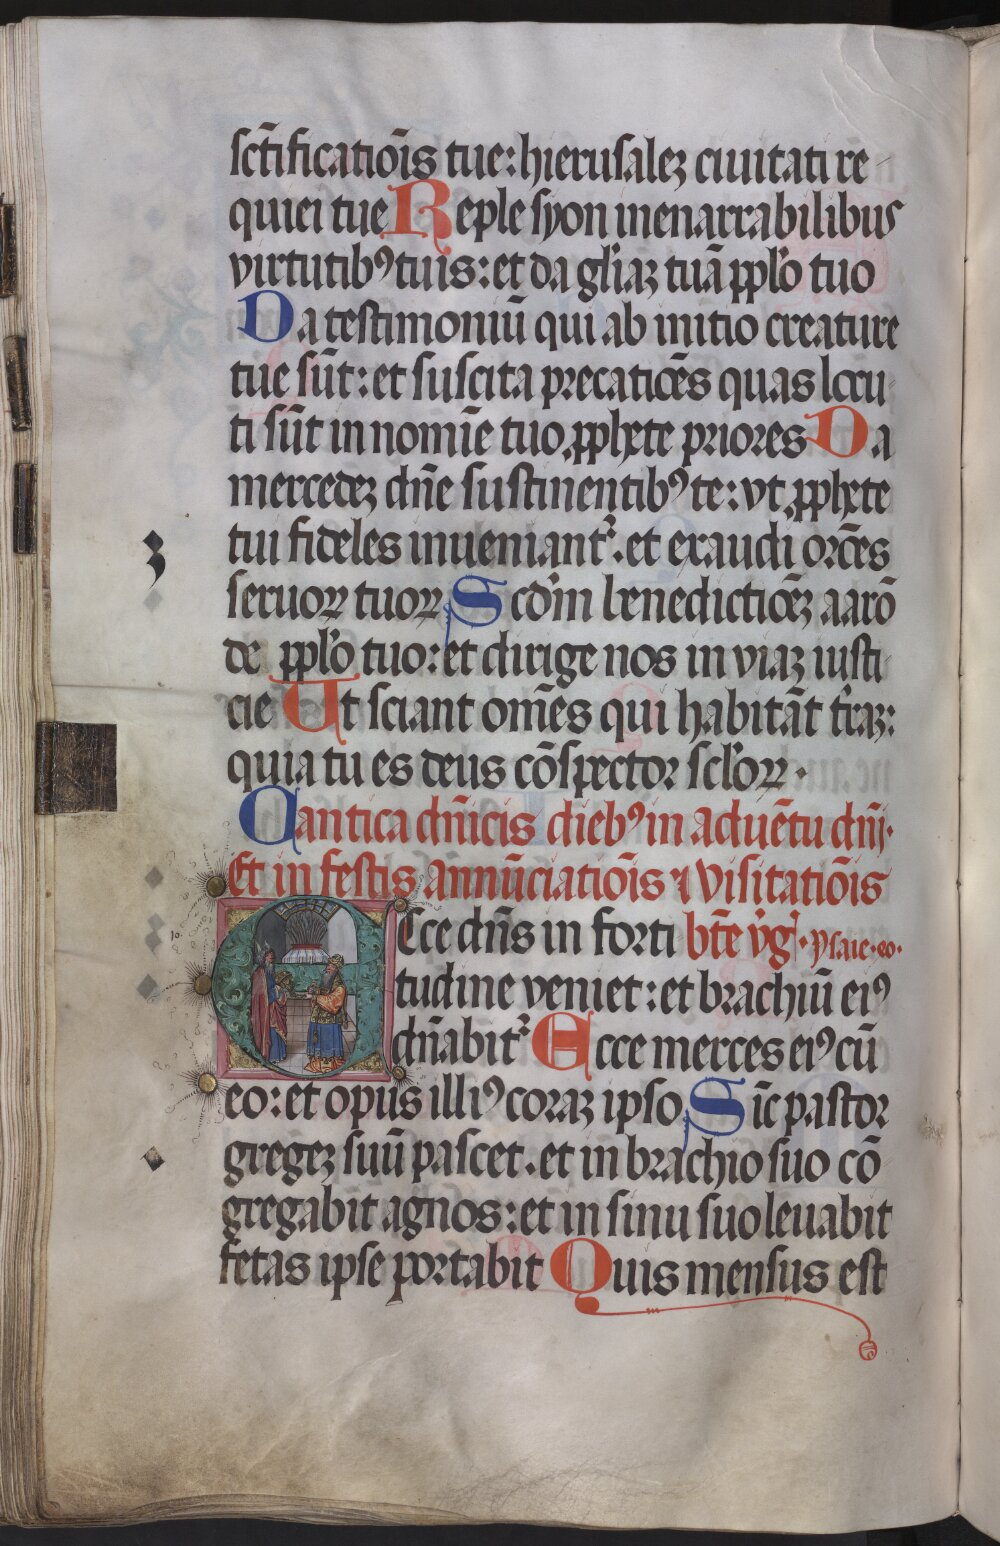 sctīficatiōis tue: hierusalez ciuitati re
quiei tue Reple syon inenarrabilibus
virtutibꝰ tuis: et da gl'iaz tuā ppl'o tuo
Da testimoniū qui ab initio creature
tue sūt: et suscita precatiōes quas locu
ti sūt in nomīe tuo ꝓphete priores Da
mercedez dn̄e sustinentibꝰ te: vt ꝓphete
tui fideles inueniant᷑. et exaudi orōes
seruoꝝ tuoꝝ Scdm̄ benedictiōez aarō
de ppl'o tuo: et dirige nos in viaz iusti
cie Ut sciant om̄es qui habitāt t'raz:
quia tu es deus cōspector scl'oꝝ.
Cantica dn̄icis diebꝰ in aduētu dn̄i.
Et in festis annūciatiōis ⁊ visitatiōis
Ecce dn̄s in forti bt̄e v'g'. ysaie. 40.
tudine veniet: et brachiū eiꝰ
dn̄abit᷑ Ecce merces eiꝰ cū
eo: et opus illiꝰ coraz ipso Sic̄ pastor
gregez suū pascet. et in brachio suo cō
gregabit agnos: et in sinu suo leuabit
fetas ipse portabit Quis mensus est